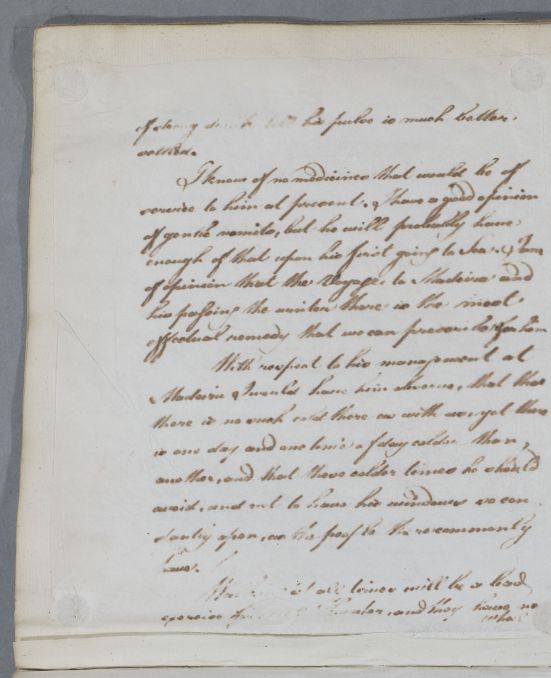 of his pulse is much better
settled.
I know of no medicines that would be of
service to him at present. I have a good opinion
of gentle vomits, but he will probably have
enough of that upon his first going to Sea. I am
of opinion that the Voyage to Madeira and
his passing the winter there is the most
effectual remedy that we can prescribe for him
With respect to his management at
Madeira I would have him observe, that tho
there is no such cold there as with us, yet there
is one day and one time of day colder than
another, and that these colder times he should
avoid, and not to have his windows so con
stantly open, as the people there commonly
have.
at all times will be a bad
exercise and they have no